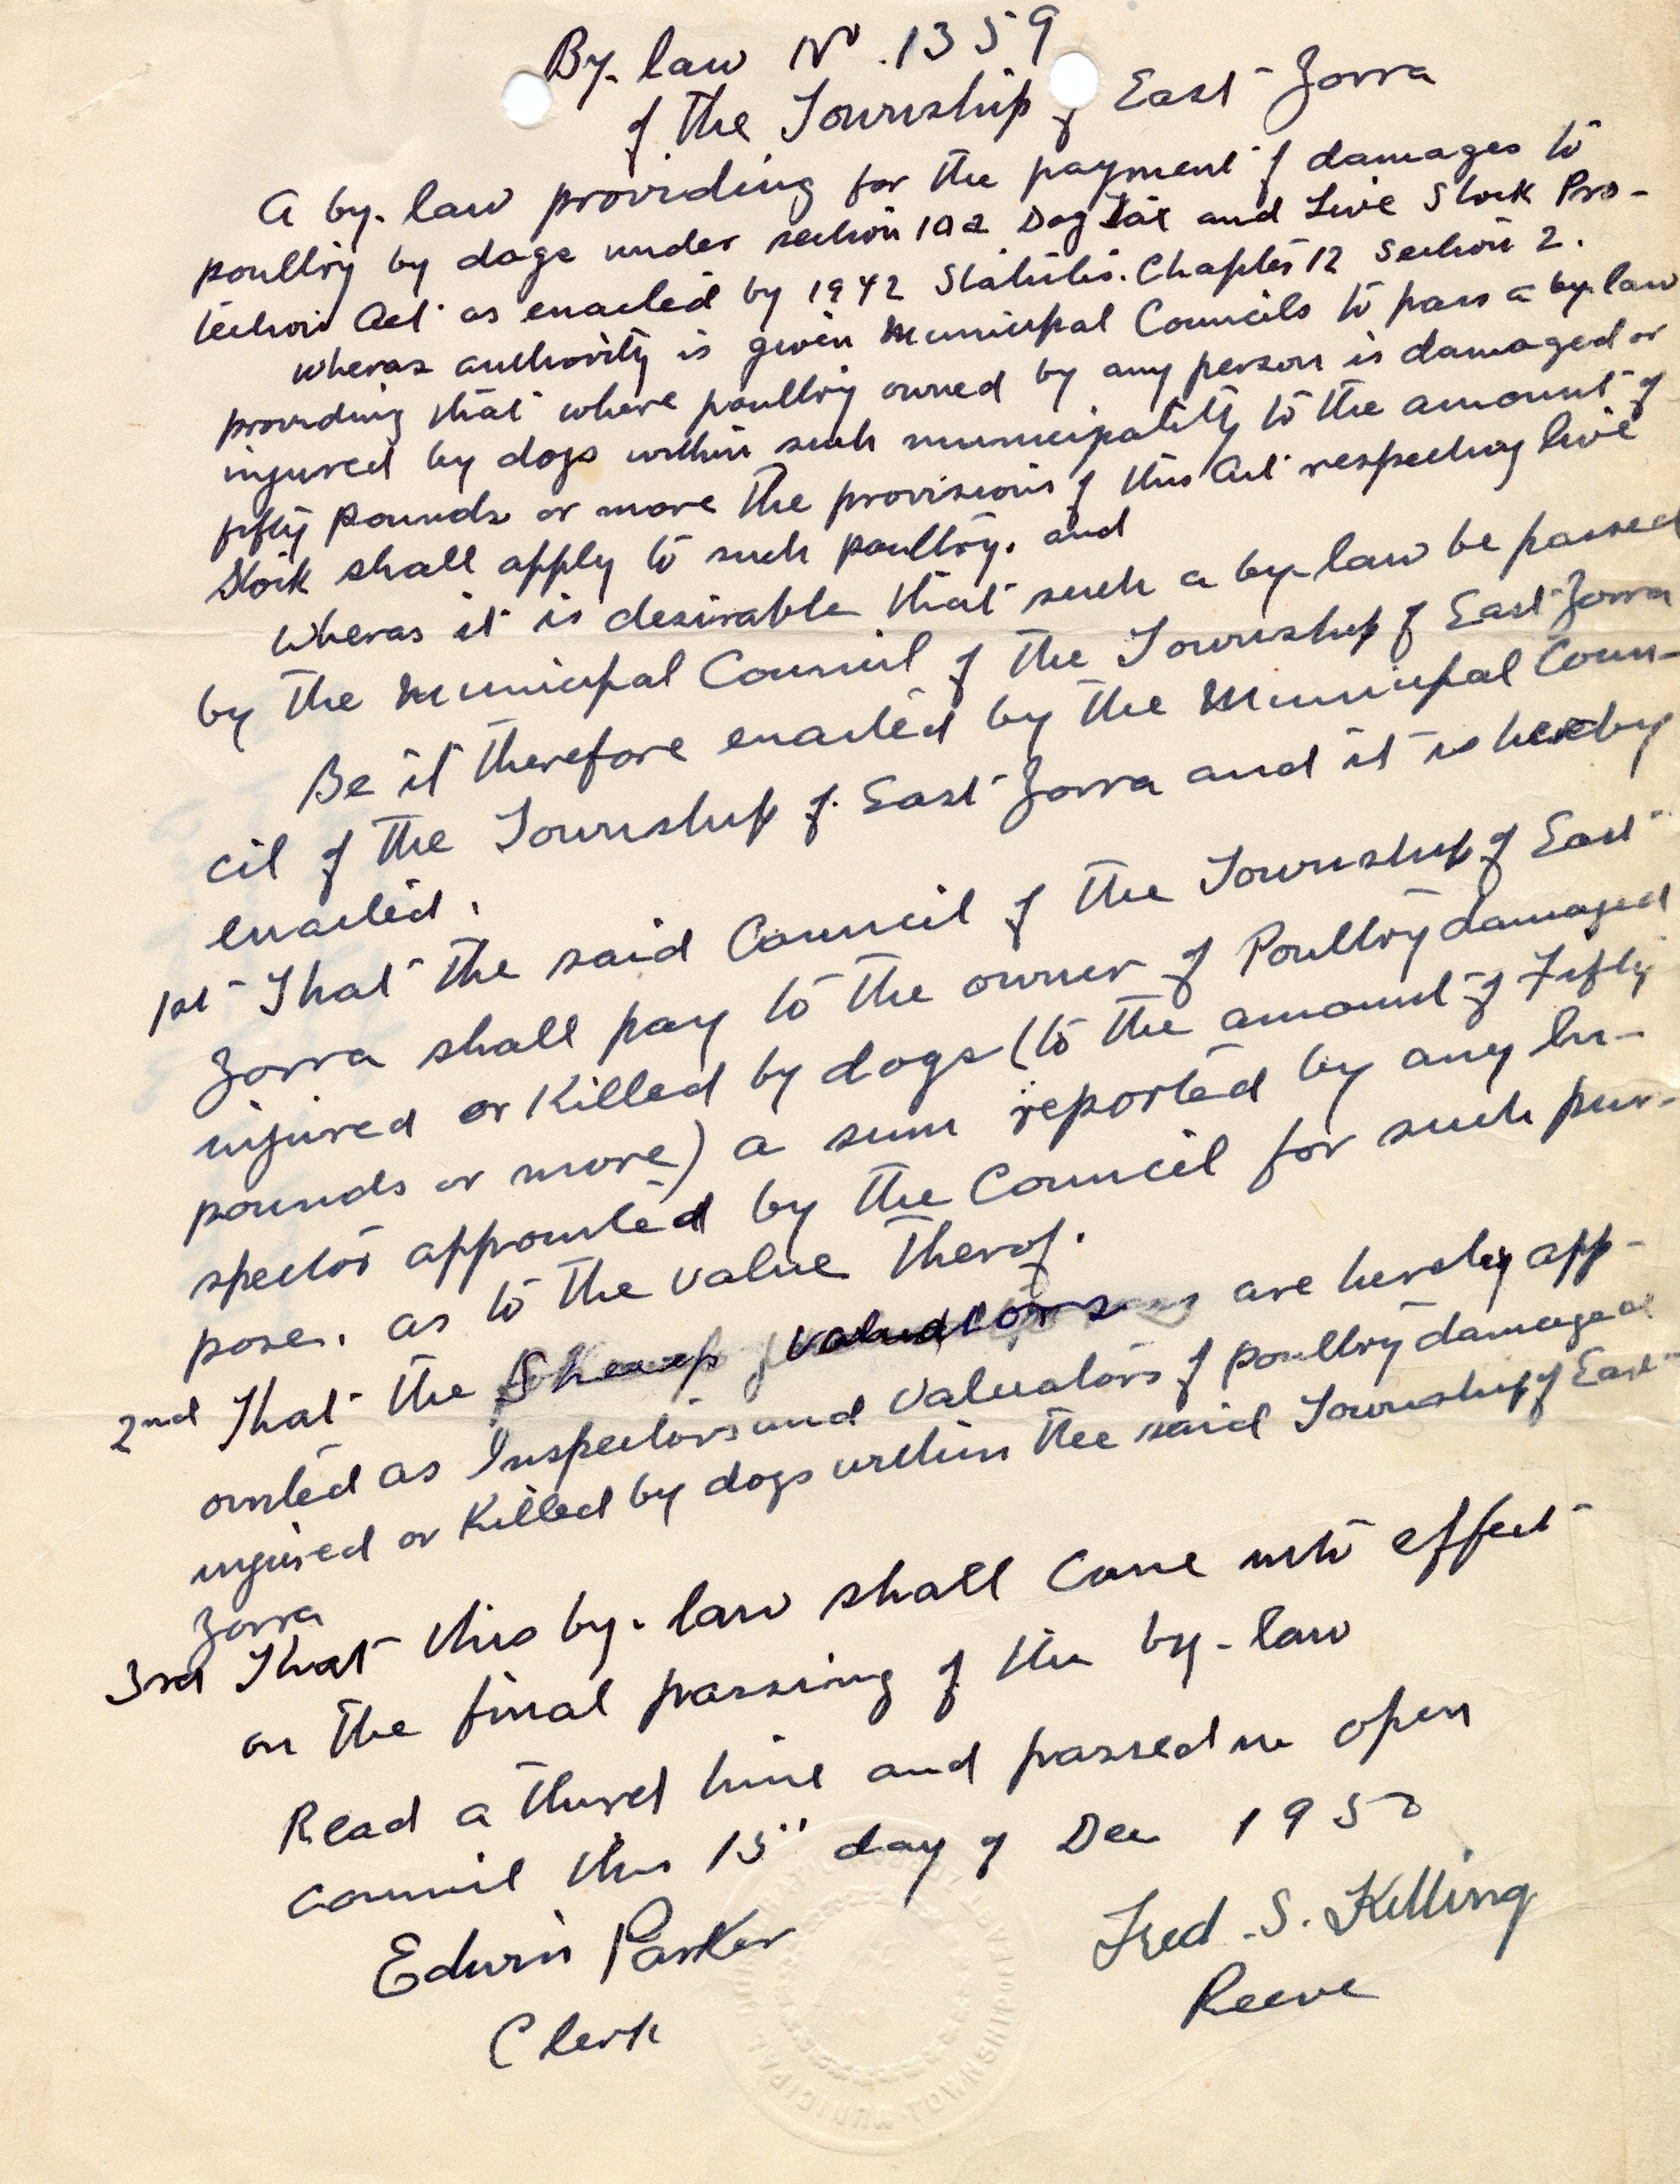 By-law No. 1359
of the Township of East Zorra
A by-law providing for the payment of damages to
poultry by dogs under section 10a Dog Tax and Live Stock Pro-
tection Act as enacted by 1942 Statutes. Chapter 12 Section 2.
wheras authority is given Municipal Councils to pass a by-law
providing that where poultry owned by any person is damaged or
injured by dogs within such municipality to the amount of
fifty pounds or more the provisions of this Act respecting live
stock shall apply to such poultry. and
wheras it is desirable that such a by-law be passed
by the Municipal Council of the Township of East Zorra
Be it therefore enacted by the Municipal Coun-
cil of the Township of East Zorra and it is hereby
enacted.
1st That the said Council of the Township of East
Zorra shall pay to the owner of Poultry damaged
injured or Killed by dogs (to the amount of Fifty
pounds or more) a sum reported by any In-
spector appointed by the Council for such pur-
pose. as to the value therof.
2nd That the Sheep valuators are hereby app-
ointed as Inspectors and Valuators of poultry damaged
injured or Killed by dogs within the said Township of East
Zorra
3rd That this by-law shall come into effect
on the final passing of the by-law
Read a third time and passed in open
council this 15" day of Dec 1950
Edwin Parker
Clerk
Fred. S. Killing
Reeve
MUNICIPAL TOWNSHIP OF